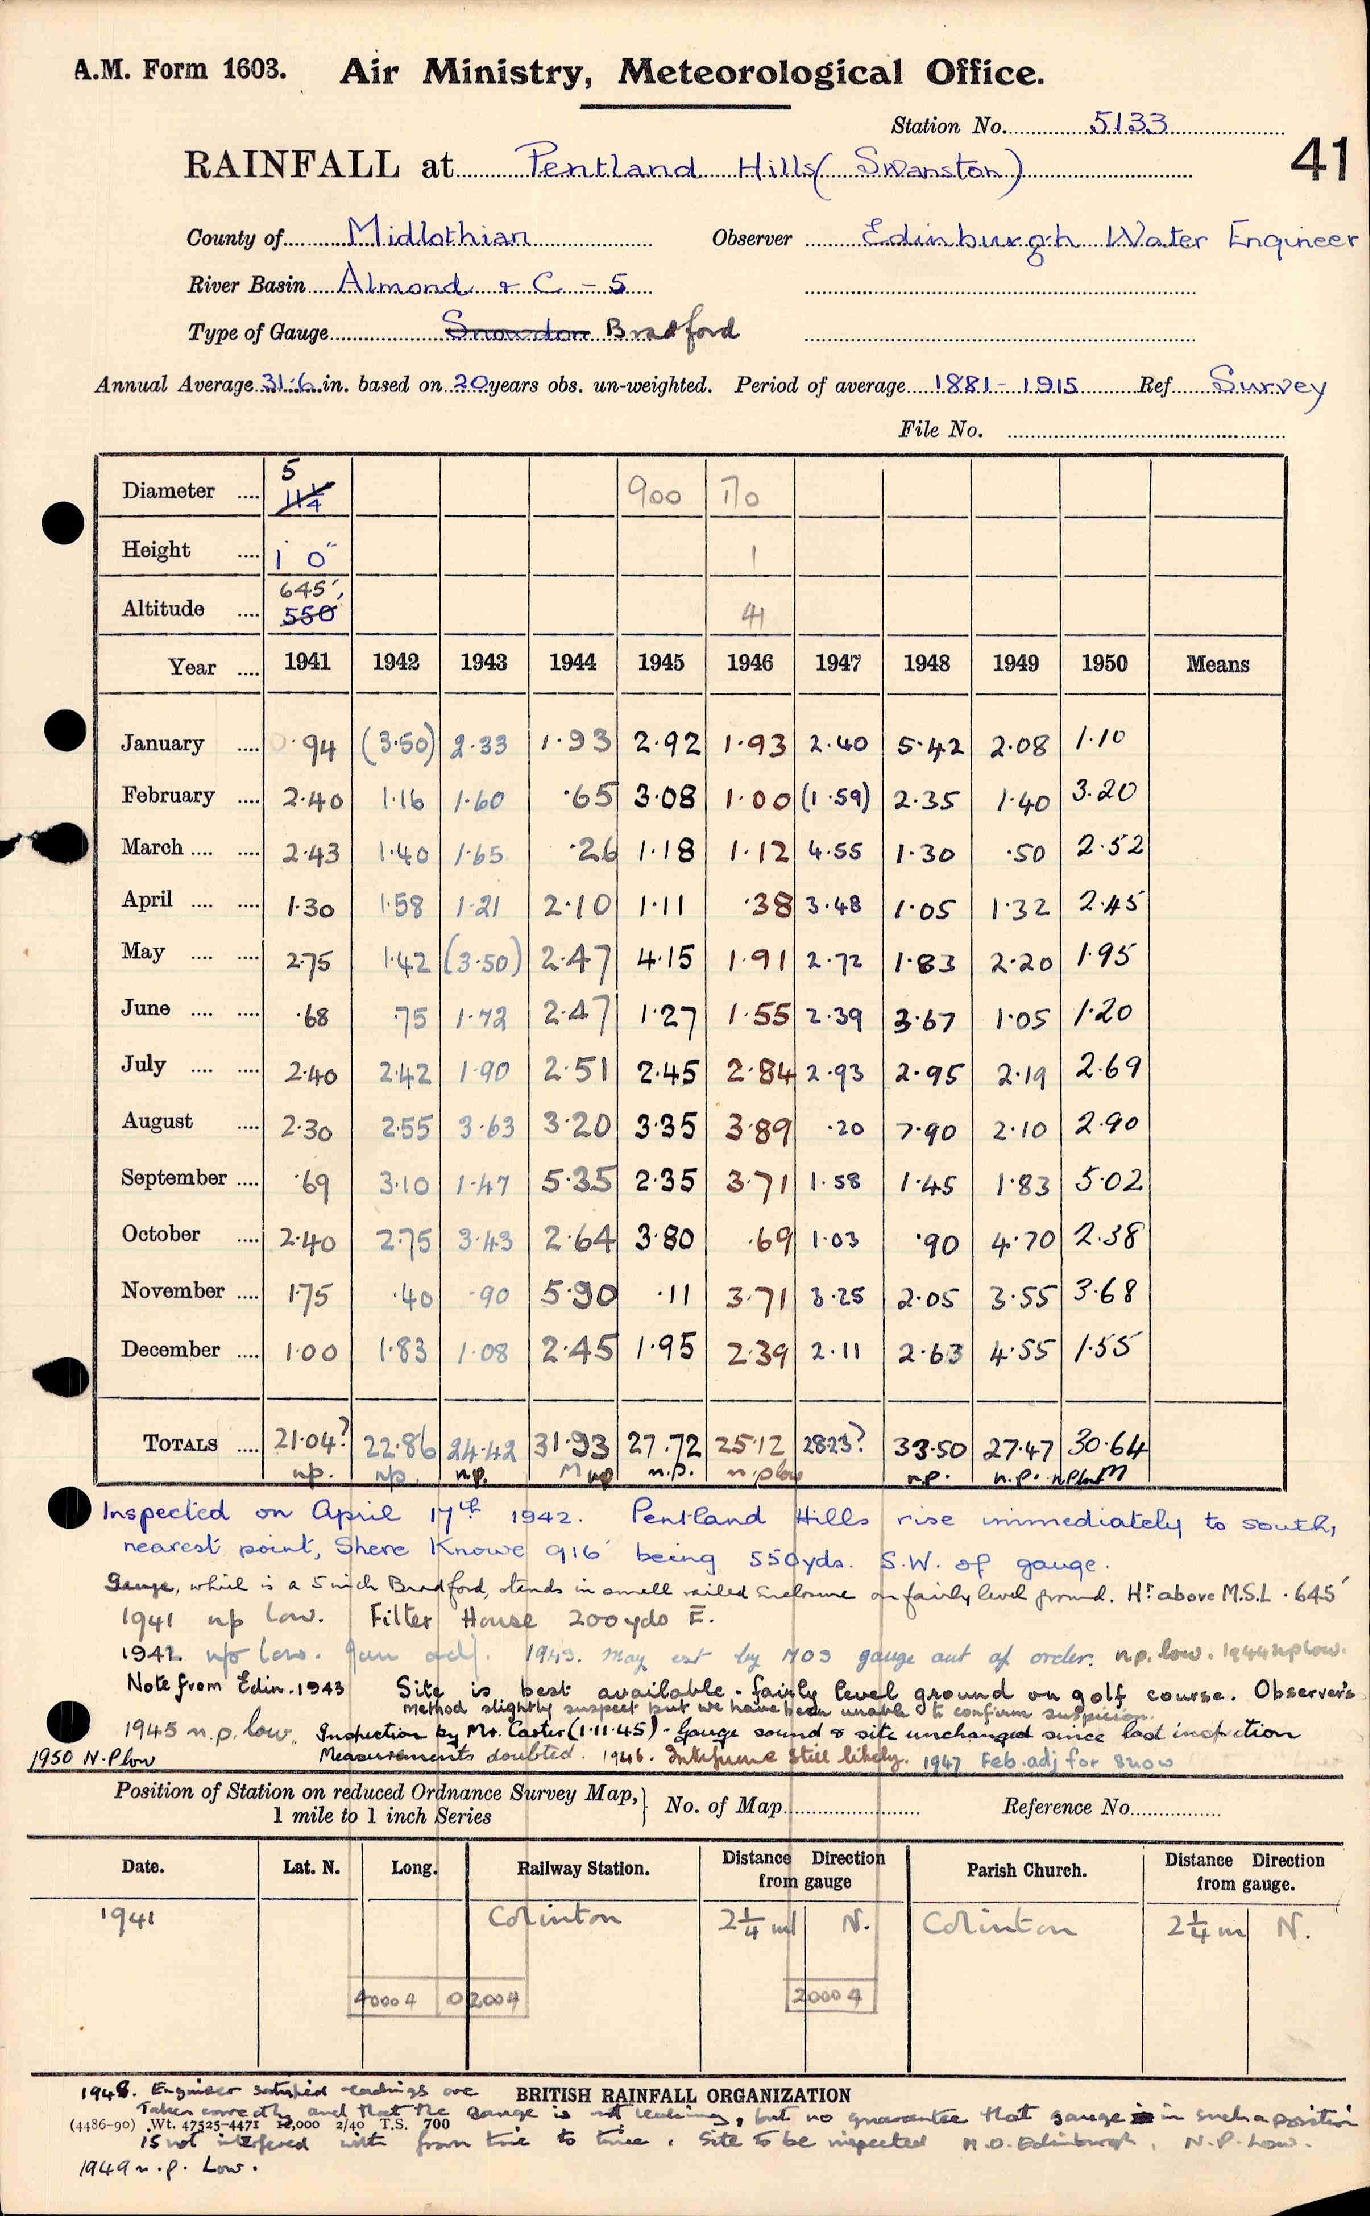 A.M. Form 1603. Air Ministry, Meteorological Office.
Station No. 5133
41
RAINFALL at Pentland Hills (Swanston)
County of Midlothian Observer Edinburgh Water Engineer
River Basin Almond & C - 5
Type of Gauge Snowdon Bradford
Annual Average 31.6 in. based on 20 years obs. un-weighted. Period of average 1881 - 1915 Ref Survey
File No.
Diameter .... 5 11¼ 900 170
Height .... 1' 0" 1
Altitude .... 645' 550 41
Year .... 1941 1942 1943 1944 1945 1946 1947 1948 1949 1950 Means
January .... 0.94 (3.50) 2.33 1.93 2.92 1.93 2.40 5.42 2.08 1.10
February .... 2.40 1.16 1.60 .65 3.08 1.00 (1.59) 2.35 1.40 3.20
March .... .... 2.43 1.40 1.65 .26 1.18 1.12 4.55 1.30 .50 2.52
April .... .... 1.30 1.58 1.21 2.10 1.11 .38 3.48 1.05 1.32 2.45
May .... .... 2.75 1.42 (3.50) 2.47 4.15 1.91 2.72 1.83 2.20 1.95
June .... .... .68 .75 1.72 2.47 1.27 1.55 2.39 3.67 1.05 1.20
July .... .... 2.40 2.42 1.90 2.51 2.45 2.84 2.93 2.95 2.19 2.69
August .... 2.30 2.55 3.63 3.20 3.35 3.89 .20 7.90 2.10 2.90
September .... .69 3.10 1.47 5.35 2.35 3.71 1.58 1.45 1.83 5.02
October .... 2.40 2.75 3.43 2.64 3.80 .69 1.03 .90 4.70 2.38
November .... 1.75 .40 .90 5.90 .11 3.71 3.25 2.05 3.55 3.68
December .... 1.00 1.83 1.08 2.45 1.95 2.39 2.11 2.63 4.55 1.55
TOTALS .... 21.04? 22.86 24.42 31.93 27.72 25.12 28.23? 33.50 27.47 30.64
n.p. n.p. n.p. M np n.p. n.p low n.p. n.p. n.p low M
Inspected on April 17th 1942. Pentland Hills rise immediately to south,
nearest point, Shere Knowe 916' being 550yds. S.W. of gauge.
Gauge, which is a 5 inch Bradford, stands in small railed enclosure on fairly level ground. Ht above M.S.L. 645'
1941 np low. Filter House 200yds E.
1942 n/p low. Jan adj. 1943. May est by MOS gauge out of order. n.p. low. 1944 np low.
Note from Edin. 1943 Site is best available - fairly level ground on golf course. Observer's
method slightly suspect but we have been unable to confirm suspicion.
1945 n.p. low. Inspection by Mr. Carter (1.11.45) - Gauge sound & site unchanged since last inspection
1950 N.P low Measurements doubted. 1946. still likely. 1947 Feb. adj for snow
Position of Station on reduced Ordnance Survey Map, 1 mile to 1 inch Series } No. of Map Reference No.
Date. Lat. N. Long. Railway Station. Distance Direction from gauge Parish Church. Distance Direction from gauge.
1941 Colinton 2¼ m N. Colinton 2¼ m N.
40004 02004 20004
1948. Engineer satisfied readings are BRITISH RAINFALL ORGANIZATION
taken correctly and that the gauge is not leaking, but no guarantee that gauge in such a position
(4486-90) Wt. 47525-4471 12,000 2/40 T.S. 700
is not interfered with from time to time. Site to be inspected M.O. Edinburgh. N.P. Low.
1949 n.p. Low.